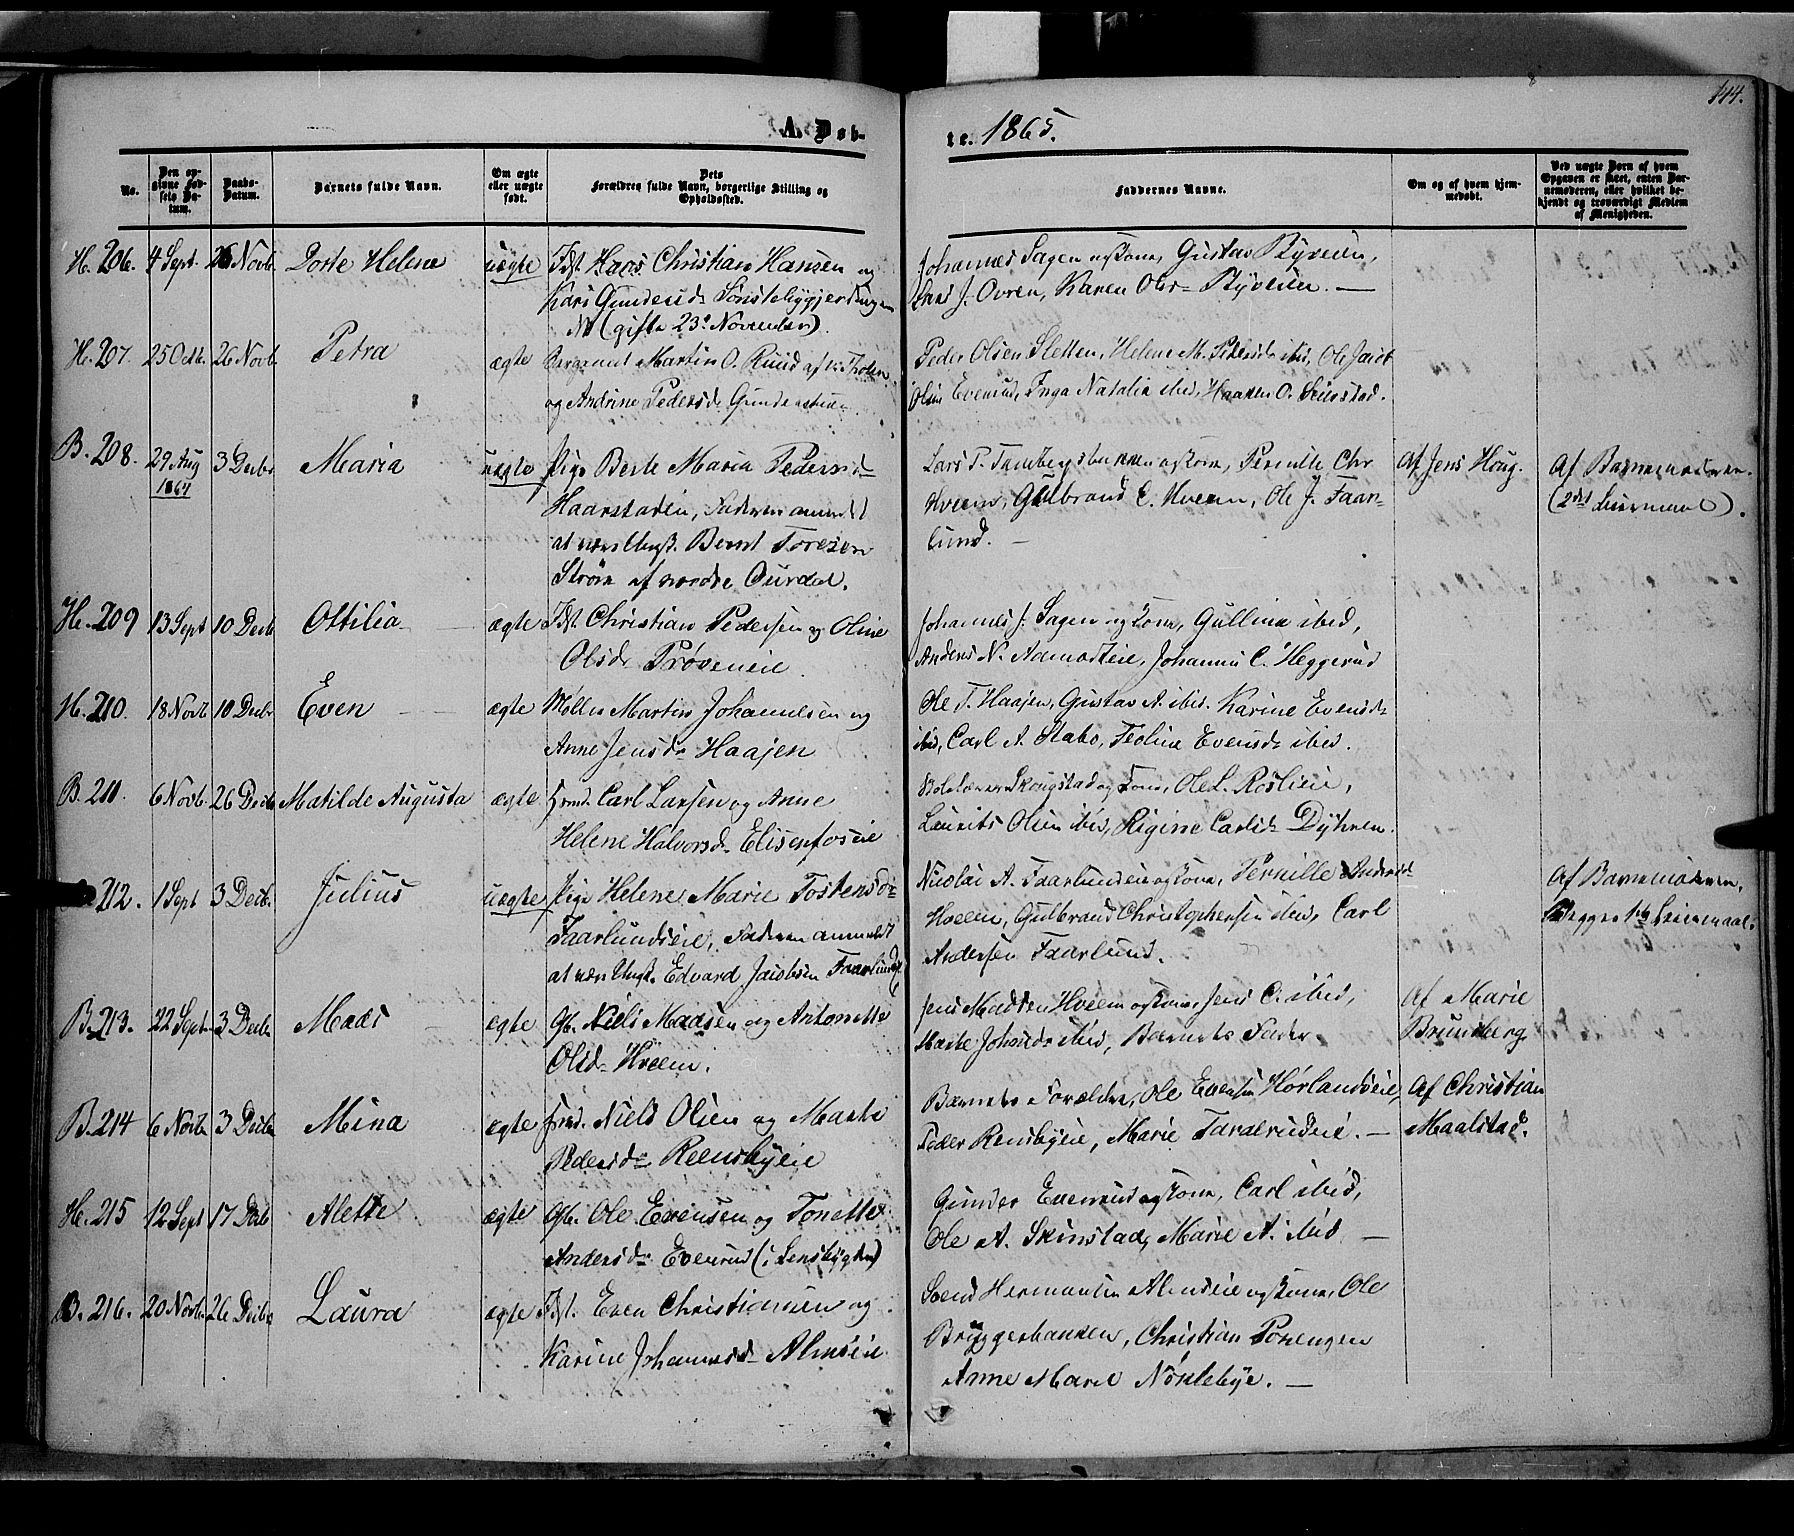 144.
A. Døb-
te. 1865.
No.
Den opgivne Fødsels Datum.
Daabs-Datum.
Barnets fulde Navn.
Om ægte eller uægte født.
Dets Forældres fulde Navn, borgerlige Stilling og Opholdssted.
Faddernes Navne.
Om og af hvem hjemmedøbt.
Ved uægte Børn af hvem Opgaven er skeet, enten Barnemoderen, eller hvilket bekjendt og troværdigt Medlem af Menigheden.
H. 206. 4 Sept. 26 Novb. Dorte Helene uægte Idst. Christian Hansen og
Kari Gundersd.
NB (gifte 23de November).
Johannes Sagen og Kone, Gustav
J. Ovren, Karen Ols
H. 207. 25 Octb. 26 Novb. Petra ægte Sergeant Martin O. Ruud af v: Thoten
og Andrine Pedersd.
Peder Olsen Sletten, Helene M. Pedersd. ibid, Ole Jacob
Olsen Evenrud, Inga Natalia ibid, Haaken O. Skinstad.
B. 208. 29 Aug 1864 3 Decbr Maria uægte Pige Berte Maria Pedersd.
Haarstadeie, Faderen anmeldt
at være Ungk. Bernt Toresen
Strøm af nordre Ourdal.
Lars P. og Kone, Pernille Chr.
Hveem, Gulbrand C. Hveem, Ole J. Faar-
lund. –
Af Jens Houg.
Af Barnemoderen.
(2det Leiermaal).
H. 209 13 Sept 10 Decb Ottilia ægte Idst. Christian Pedersen og Oline
Olsd. Prøveneie.
Johannes J. Sagen og Kone, Gulline ibid,
Anders N. Johannes C. Heggerud
H. 210. 18 Novb 10 Decbr Even ægte Møller Martin Johannesen og
Anne Jensd. Haajen
Ole T. Haajen, Gustav A. ibid. Karine Evensd.
ibid, Carl A. Stabo, Teoline Evensd. ibid.
B. 211. 6 Novb. 26 Decb Matilde Augusta ægte Carl Larsen og Anne
Helene Halvorsd. Elisenfoseie
Skolelærer Skougstad og Kone, Ole L. Roslieie,
Laurits Olsen ibid, Regine Carlsd. Dyhren.
212. 1 Sept 3 Decb. Julius uægte Pige Helene Marie Tostensd.
Faarlundseie, Faderen anmeldt
at være Ungk. Edvard Jacobsen Faarlundseie
Nicolai A. Faarlundeie og Kone, Pernille Andersd.
Hveem, Gulbrand Christophersen ibid, Carl
Andersen Faarlund.
Af Barnemoderen,
Begges 1ste Leiermaal.
B. 213. 22 Sept. 3 Decbr. Maas ægte Gb. Niels Maasen og Antonette
Olsd. Hveem.
Jens Madsen Hveem og Kone, Jens C. ibid,
Marte Johansd. ibid, Barnets Fader.
Af Marie
Brundberg
B. 214 6 Novb 3 Decbr Mina ægte Niels Olsen og Marte
Pedersd. Reensbyeie
Barnets Forældre, Ole Evensen Hørlandseie,
Peder Rensbyeie, Marie Taralrudeie. –
Af Christian
Maalstad.
H. 215 12 Sept 17 Decb Alette ægte Gb. Ole Evensen og Tonette
Andersd. Evenrud
Gunder Evenrud og Kone, Carl ibid,
Ole A. Skinstad, Marie A. ibid –
B. 216. 20 Novb. 26 Decbr Laura ægte Idst. Even Christiansen og
Karine Johannesd. Almseie
Svend Hermansen Almseie og Kone, Ole
Bryggerbakken, Christian Porengen
Anne Marie Nørdlebye. –